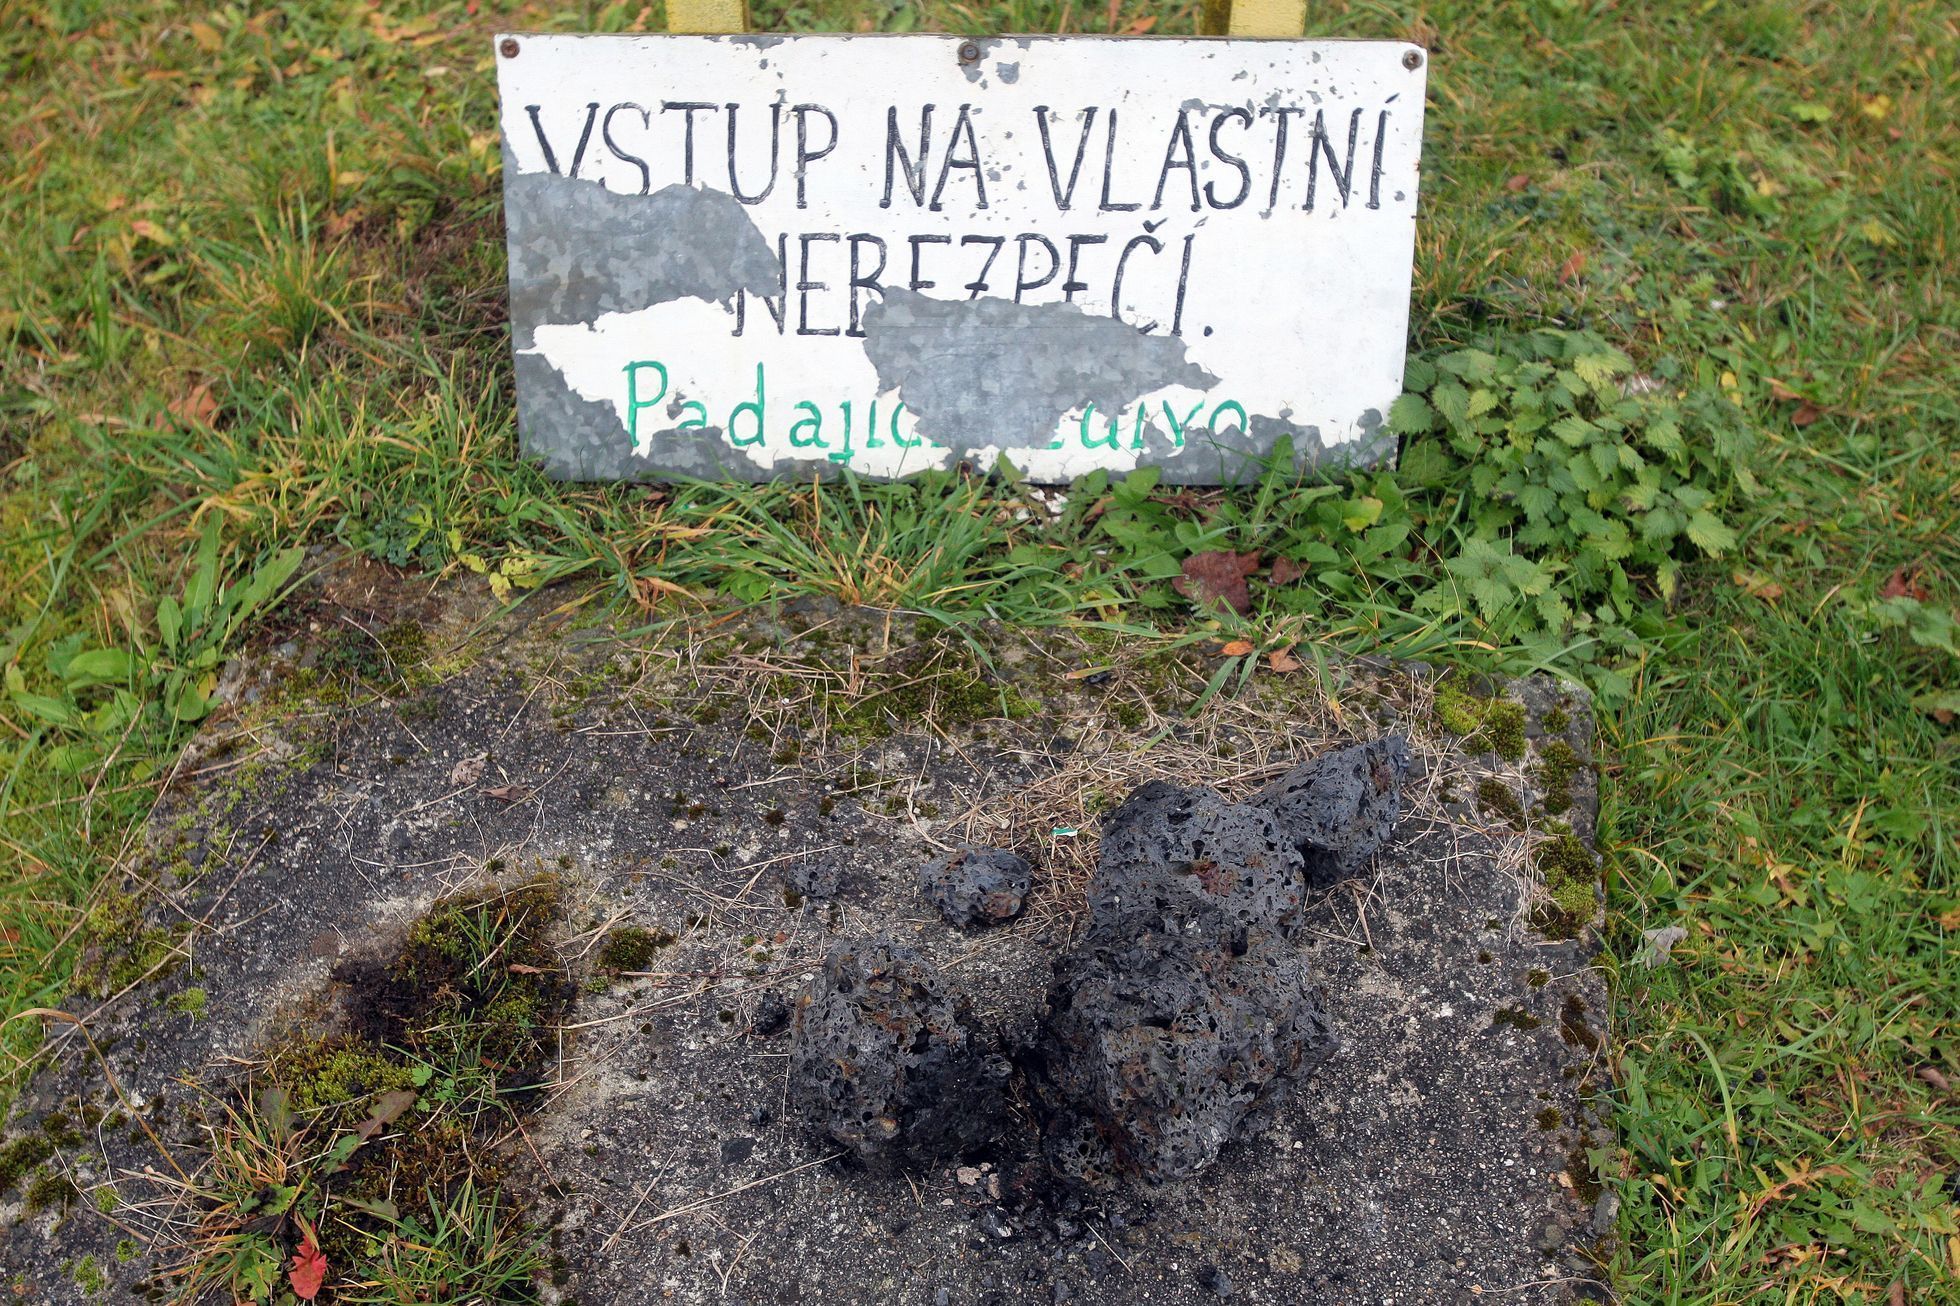 VSTUP NA VLASTNÍ
NEBEZPEČÍ.
Padající zdivo